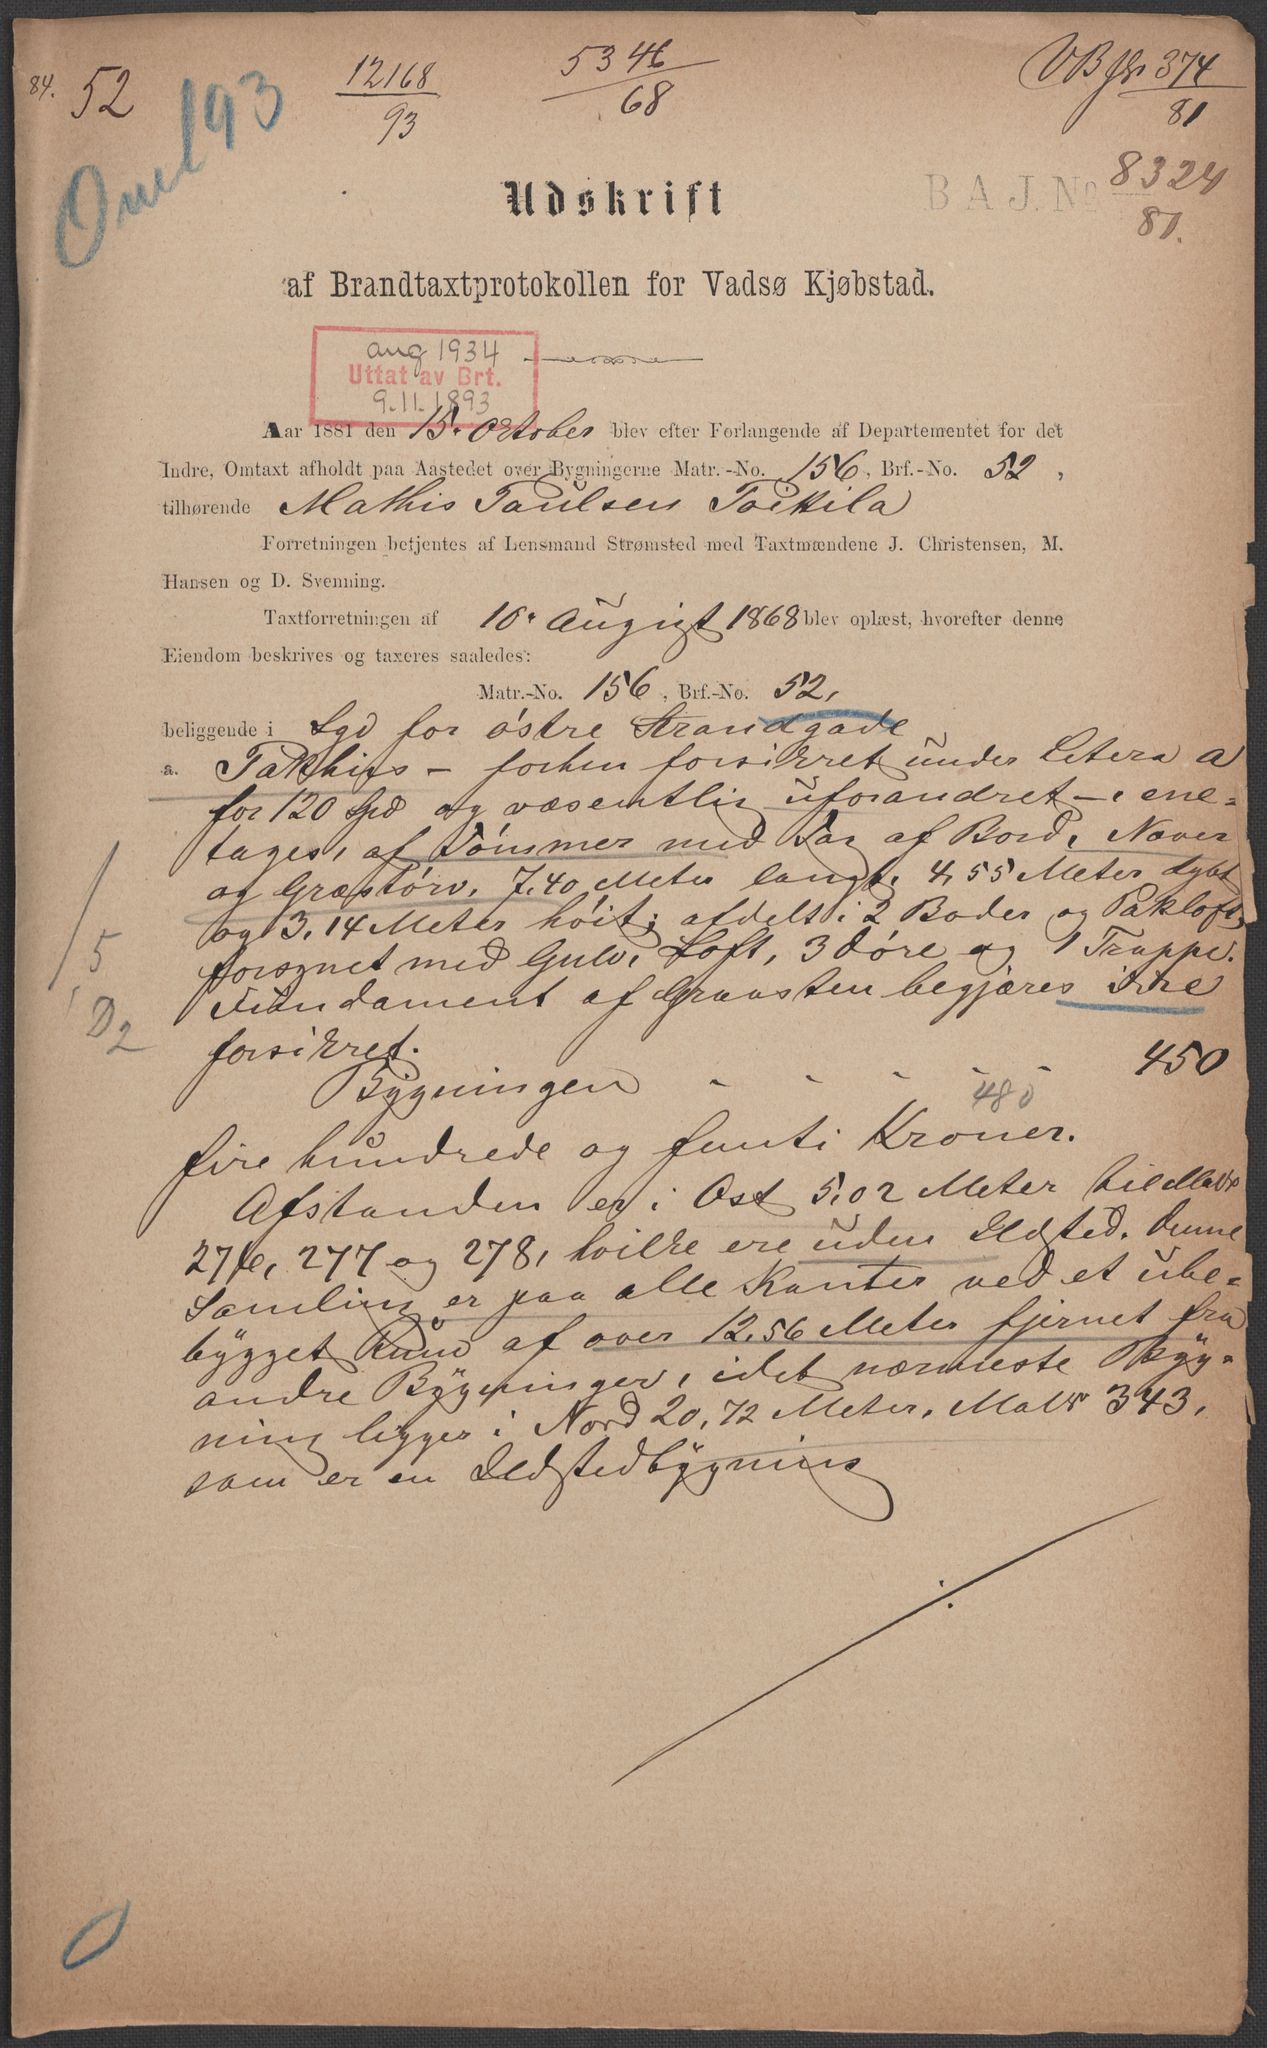 84. 52
Omt 93
12168
93
5346
68
VBf 374
81
B A J. No 8324
81.
Udskrift
af Brandtaxtprotokollen for Vadsø Kjøbstad.
aug 1934
Uttat av Brt.
9.11.1893
Aar 1881 den 15. October blev efter Forlangende af Departementet for det
Indre, Omtaxt afholdt paa Aastedet over Bygningerne Matr.-No. 156, Brf.-No. 52,
tilhørende Mathis Paulsen Poikila
Forretningen betjentes af Lensmand Strømsted med Taxtmændene J. Christensen, M.
Hansen og D. Svenning.
Taxtforretningen af 10. August 1868 blev oplæst, hvorefter denne
Eiendom beskrives og taxeres saaledes:
Matr.-No. 156, Brf.-No. 52,
beliggende i Syd for østre Strandgade
a. Pakhus – forhen forsikret under Litera a
for 120 Spd og væsentlig uforandret – ene-
tages, af Tømmer med Tag af Bord, Næver
og Græstørv, 7,40 Meter langt, 4,55 Meter dybt
og 3,14 Meter høit; afdelt i 2 Boder og Pakloft,
forsynet med Gulv, Loft, 3 Døre og 1 Trappe.
Fundament af Graasten begjæres ikke
forsikret.
Bygningen - - - - - 450
480
fire hundrede og femti Kroner.
Afstanden er i Øst 5,02 Meter til Matr
276, 277 og 278, hvilke ere uden Ildsted. Denne
Samling er paa alle Kanter ved et ube-
bygget Rum af over 12,56 Meter fjernet fra
andre Bygninger, idet nærmeste Byg-
ning ligger i Nord 20,72 Meter, Matr 343,
som er en Ildstedbygning
/5
D2